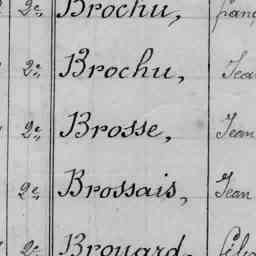 2e Brochu,
2e Brochu, Jean
2e Brosse, Jean
2e Brossais, Jean
2e Brouard,